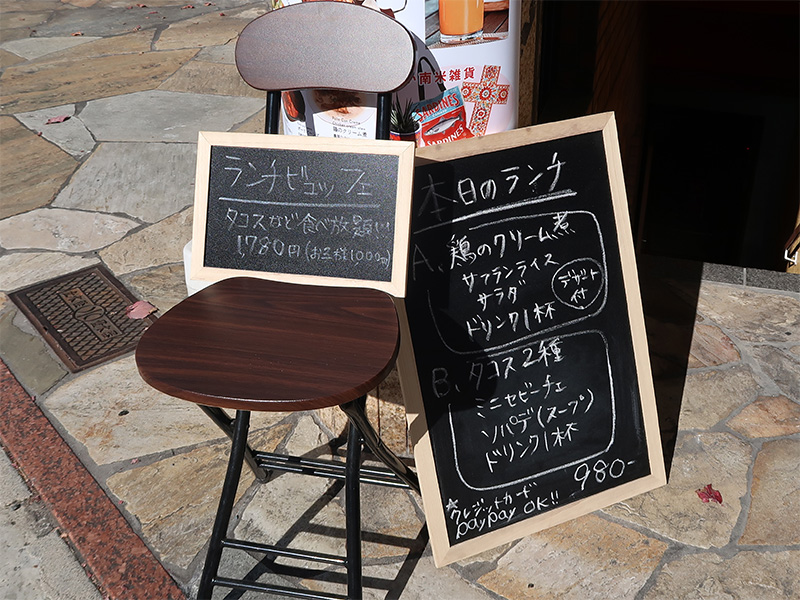 南米雑貨
SARDINES
SARDINES
ランチビュッフェ
タコスなど食べ放題!!
1,780円(お子様1000円)
本日のランチ
A、鶏のクリーム煮
サフランライス
サラダ
ドリンク1杯
デザート
付
B、タコス2種
ミニセビーチェ
ソパデ(スープ)
ドリンク1杯
980-
☆クレジットカード
paypay OK!!